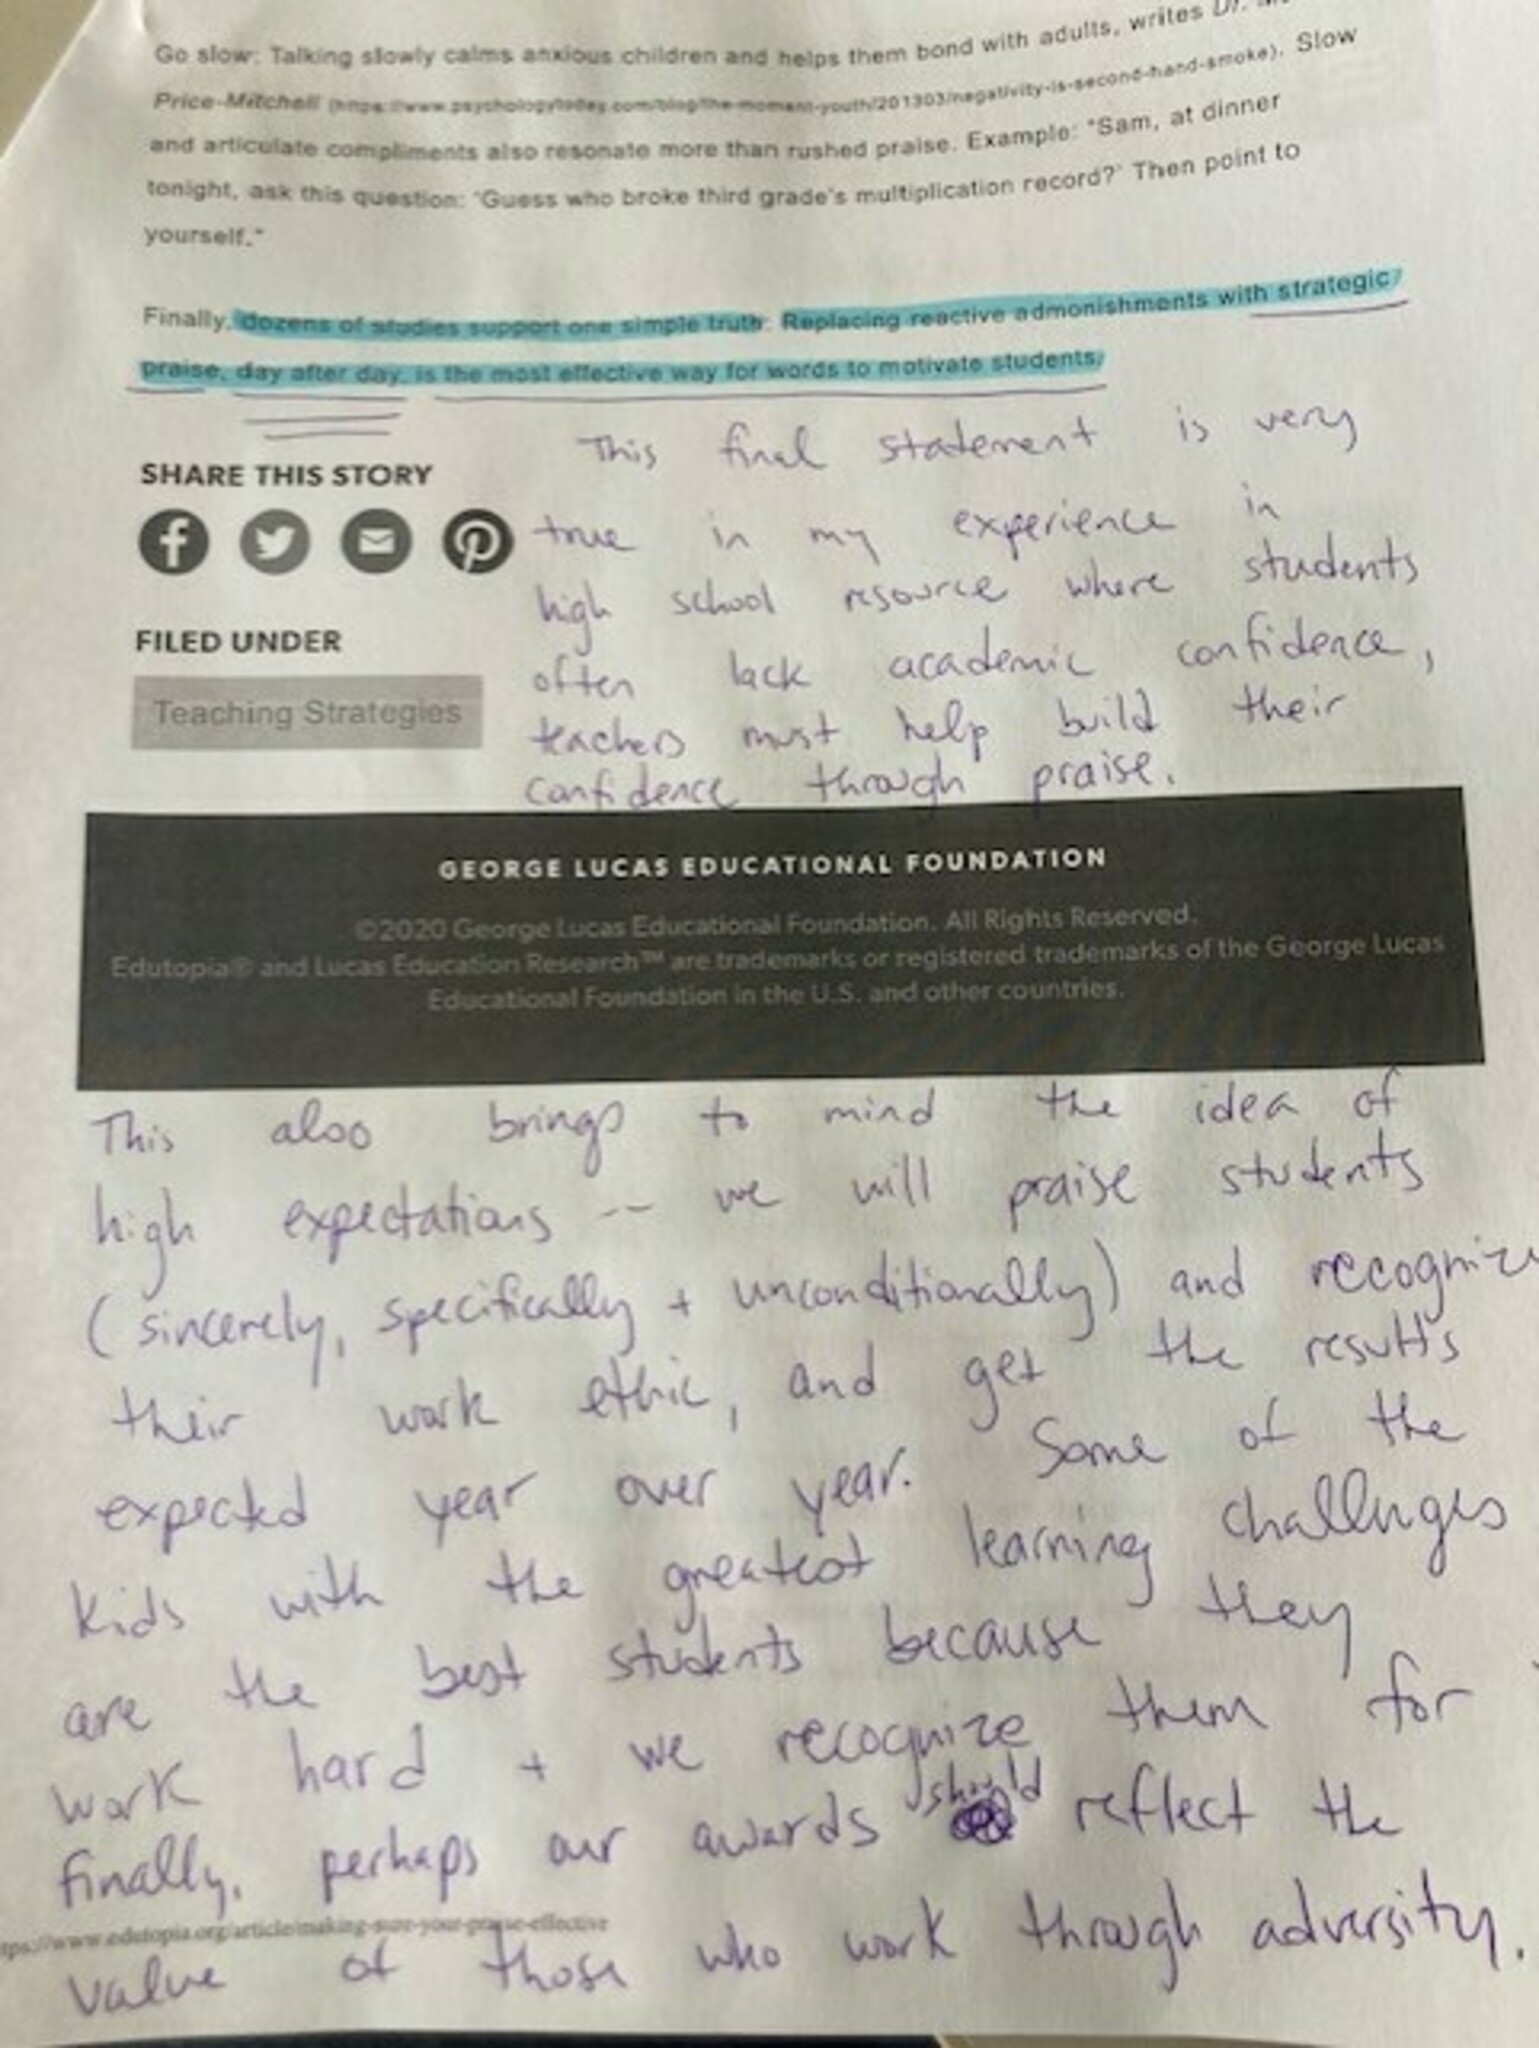 Go slow: Talking slowly calms anxious children and helps them bond with adults, writes Dr.
Price-Mitchell (https://www.psychologytoday.com/blog/the-moment-youth/201303/negativity-is-second-hand-smoke). Slow
and articulate compliments also resonate more than rushed praise. Example: "Sam, at dinner
tonight, ask this question: 'Guess who broke third grade's multiplication record?' Then point to
yourself."
Finally, dozens of studies support one simple truth: Replacing reactive admonishments with strategic
praise, day after day, is the most effective way for words to motivate students.
This final statement is very
true in my experience in
high school resource where students
often lack academic confidence,
teachers must help build their
confidence through praise.
SHARE THIS STORY
FILED UNDER
Teaching Strategies
GEORGE LUCAS EDUCATIONAL FOUNDATION
©2020 George Lucas Educational Foundation. All Rights Reserved.
Edutopia® and Lucas Education Research™ are trademarks or registered trademarks of the George Lucas
Educational Foundation in the U.S. and other countries.
This also brings to mind the idea of
high expectations -- we will praise students
(sincerely, specifically + unconditionally) and recognize
their work ethic, and get the results
expected year over year. Some of the
kids with the greatest learning challenges
are the best students because they
work hard + we recognize them for
finally, perhaps our awards should reflect the
value of those who work through adversity.
tps://www.edutopia.org/article/making-sure-your-praise-effective